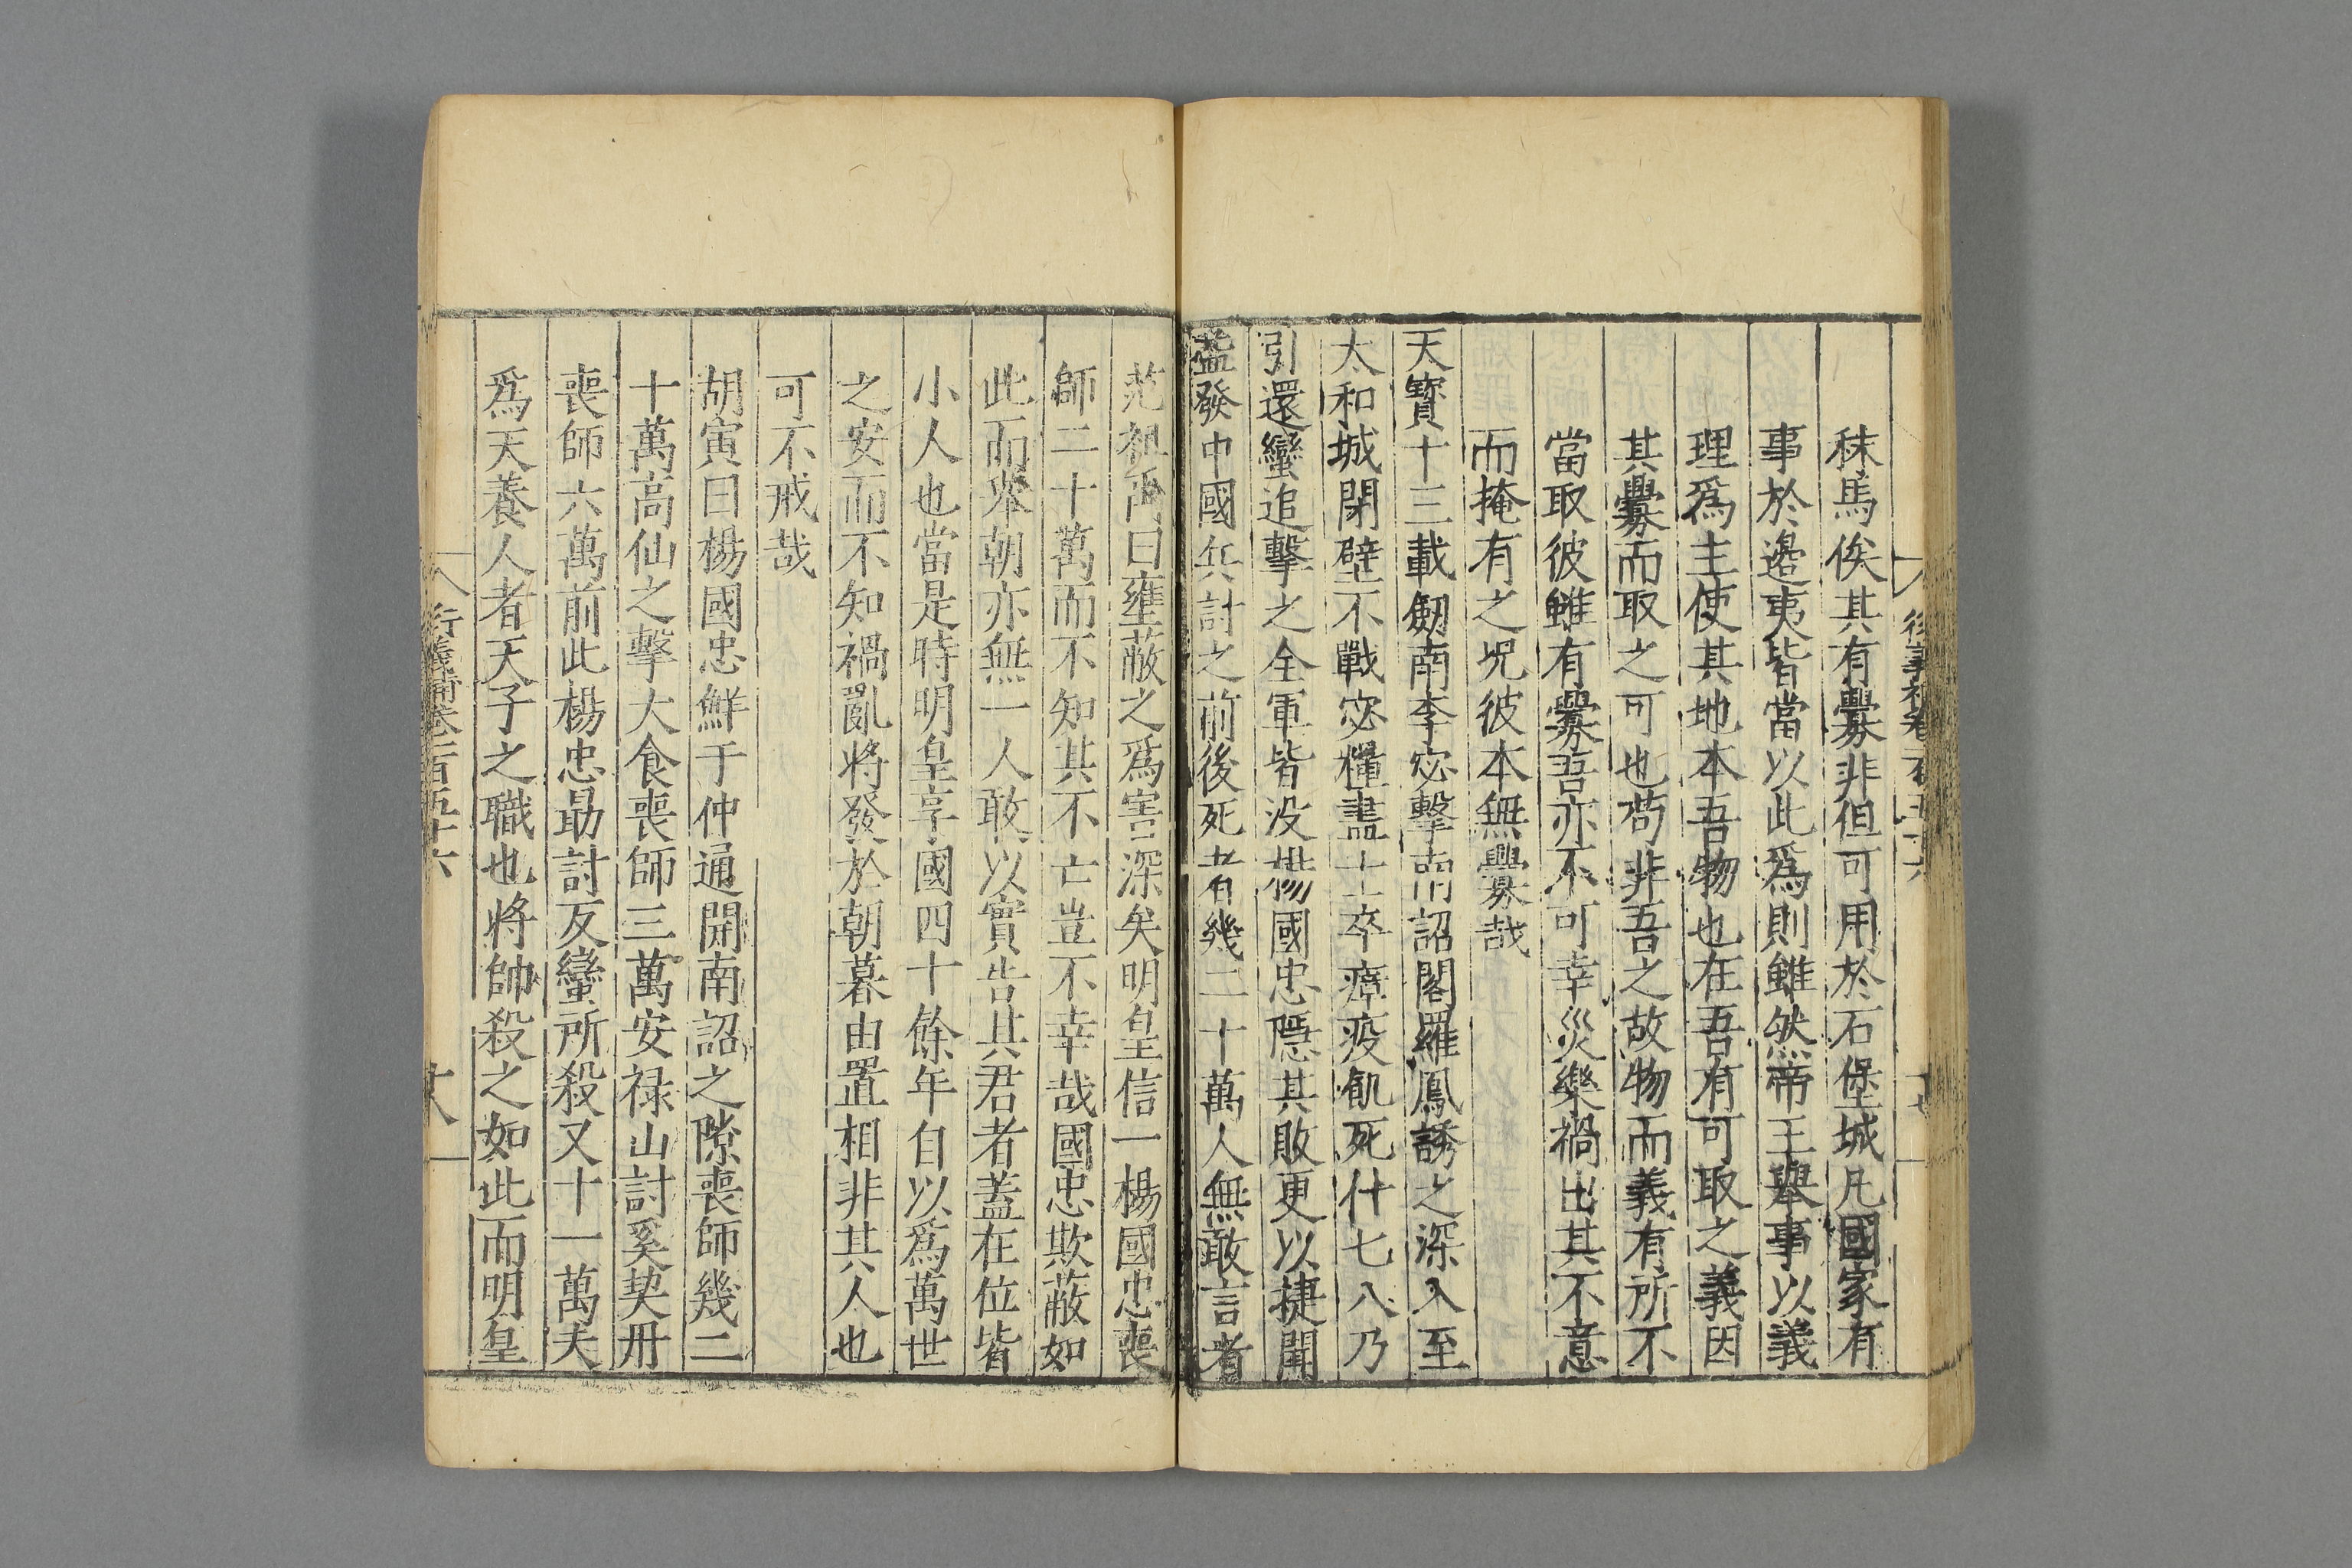 秣馬俟其有釁非但可用於石堡城凡國家有
事於邊夷皆當以此爲則雖然帝王舉事以義
理爲主使其地本吾物也在吾有可取之義因
其釁而取之可也苟非吾之故物而義有所不
當取彼雖有釁吾亦不可幸災樂禍出其不意
而掩有之况彼本無釁哉
天寶十三載劔南李宓擊南詔閣羅鳳誘之深入至
太和城閉壁不戰宓糧盡士卒瘴疫飢死什七八乃
引還蠻追擊之全軍皆没楊國忠隱其敗更以捷聞
益發中國兵討之前後死者幾二十萬人無敢言者
范祖禹曰壅蔽之爲害深矣明皇信一楊國忠喪
師二十萬而不知其不亡豈不幸哉國忠欺蔽如
此而舉朝亦無一人敢以實告其君者蓋在位皆
小人也當是時明皇享國四十餘年自以爲萬世
之安而不知禍亂將發於朝暮由置相非其人也
可不戒哉
胡寅曰楊國忠鮮于仲通開南詔之隙喪師幾二
十萬高仙之擊大食喪師三萬安禄山討奚契丹
喪師六萬前此楊忠勗討反蠻所殺又十一萬夫
爲天養人者天子之職也將帥殺之如此而明皇
衍義補卷一百五十六
十八